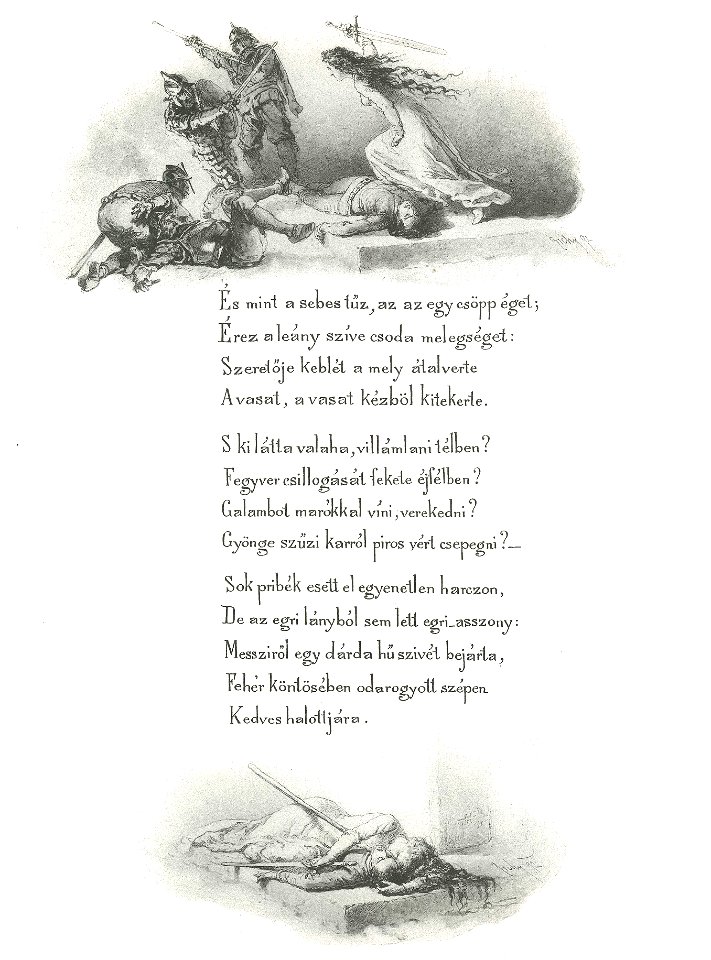 És mint a sebes tűz, az az egy csöpp éget;
Érez a leány szíve csoda melegséget:
Szeretője keblét a mely átalverte
A vasat, a vasat kézből kitekerte.
S ki látta valaha, villámlani télben?
Fegyver csillogását fekete éjfélben?
Galambot marókkal víni, verekedni?
Gyönge szűzi karról piros vért csepegni?_
Sok pribék esett el egyenetlen harczon,
De az egri lányból sem lett egri-asszony:
Messziről egy dárda hű szivét bejárta,
Fehér köntösében odarogyott szépen
Kedves halottjára.